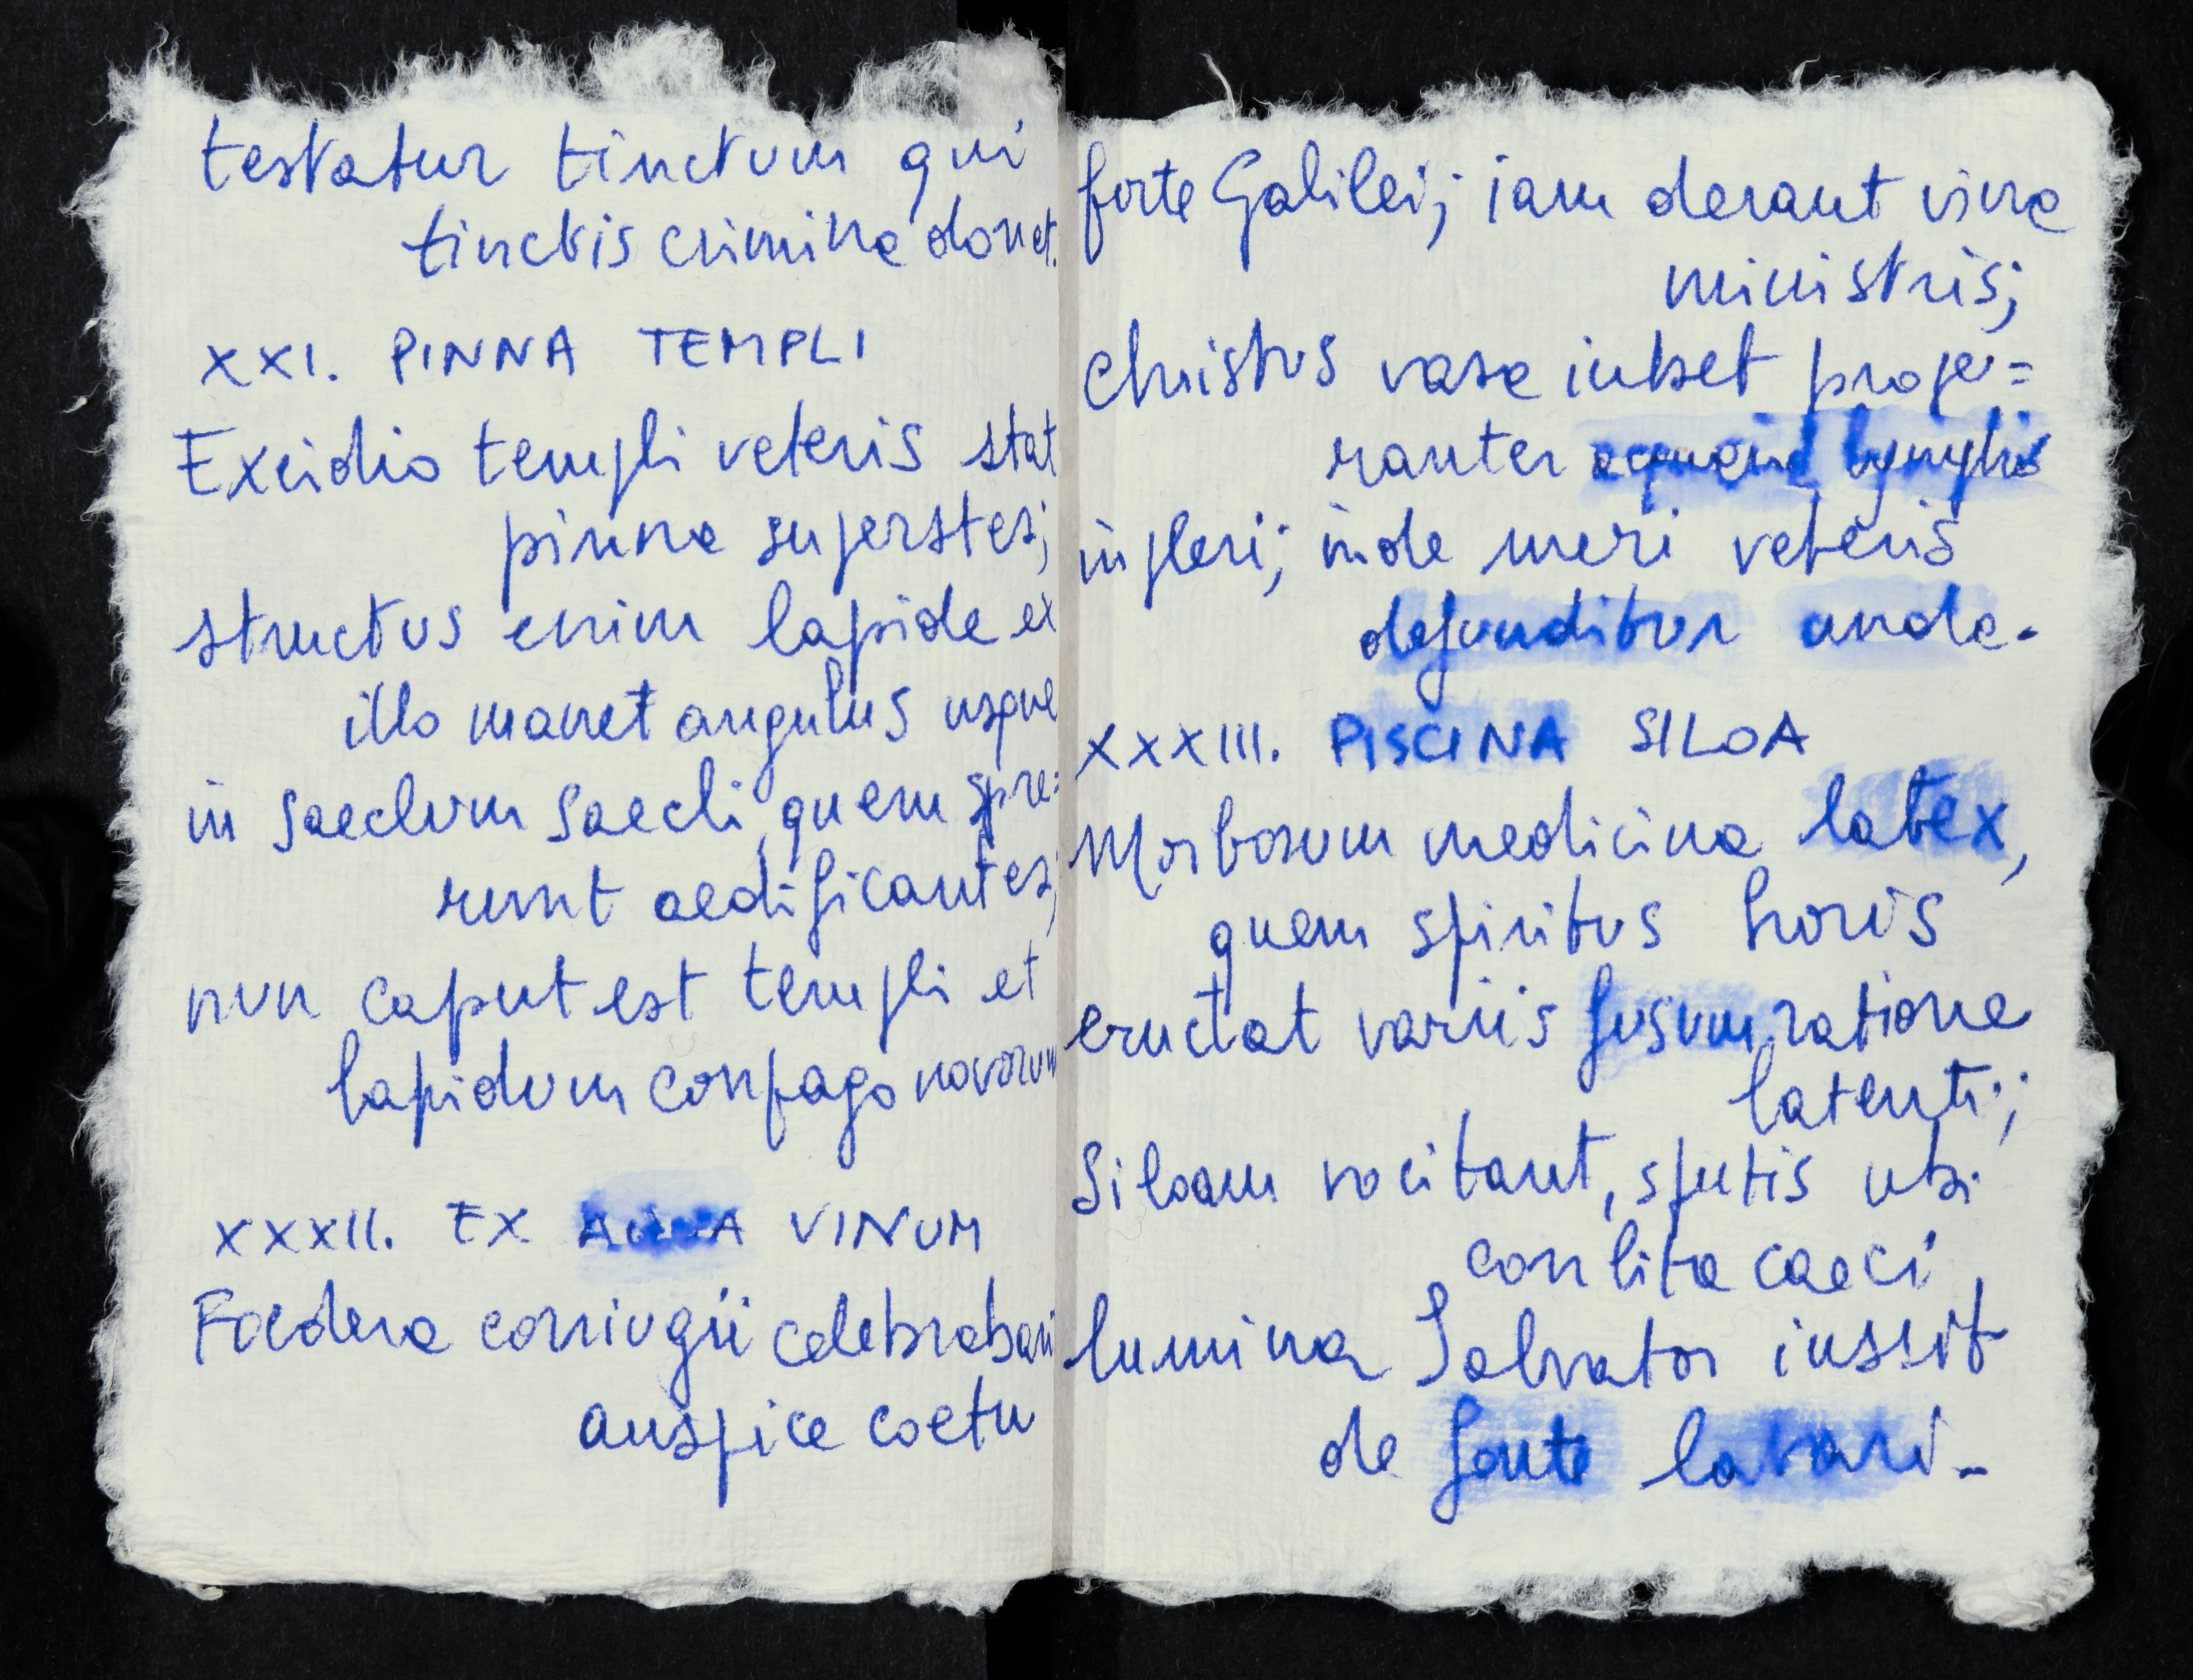 testatur tinctum qui
tinctis crimina donet.
XXI. PINNA TEMPLI
Excidio templi veteris stat
pinna superstes;
structus enim lapide ex
illo manet angulus usque
in saeclum saecli, quem spre=
runt aedificantes;
nun caput est templi et
lapidum conpago novorum
XXXII. EX AQUA VINUM
Foedera coniugii celebrabant
auspice coetu
forte Galilei; iam derant vina
ministris;
Christus vasa iubet prope=
ranter aquaria lymphis
inpleri; inde meri veteris
defunditur unda.
XXXIII. PISCINA SILOA
Morborum medicina latex,
quem spiritus horis
eructat variis fusum ratione
latenti;
Siloam vocitant, sputis ubi
conlita caeci
lumina Salvator iussit
de fonte lavari-